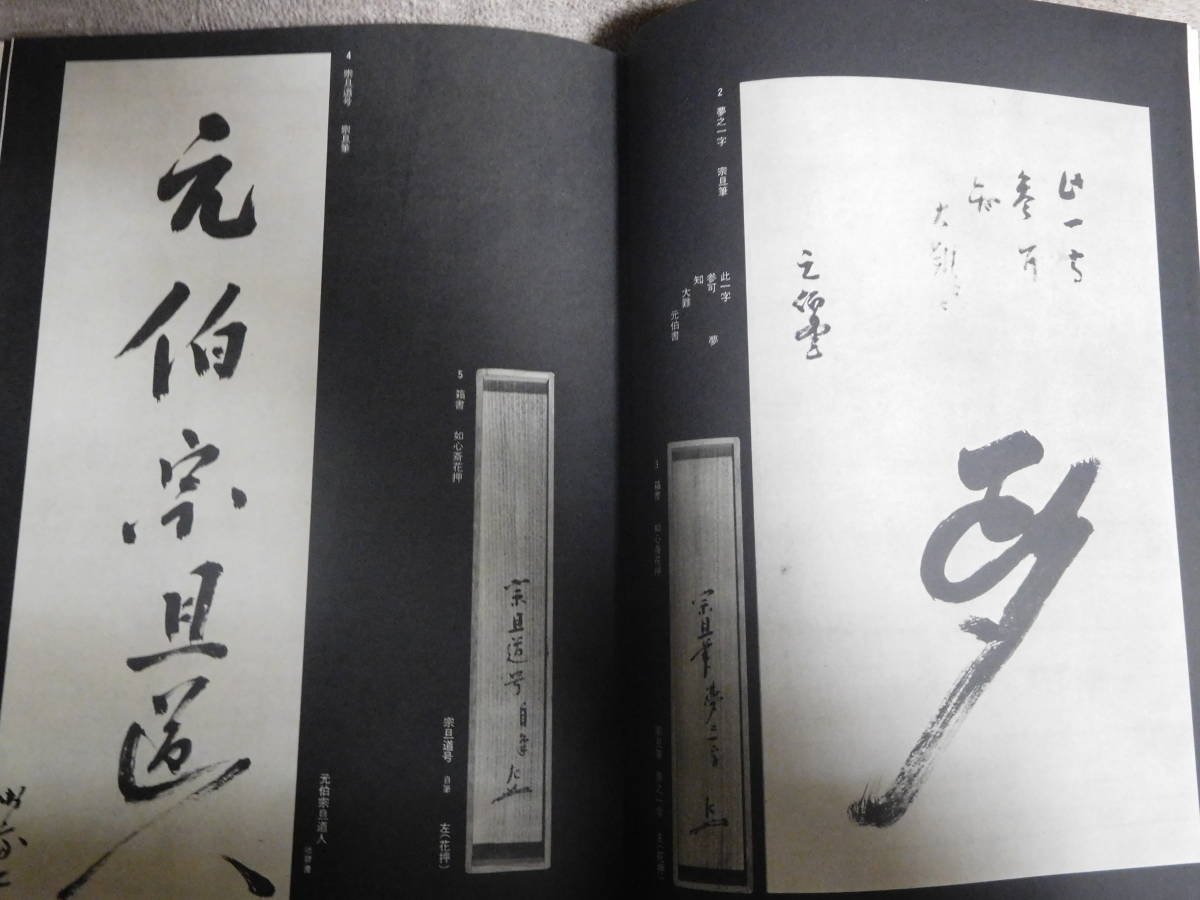 2 夢之一字 宗旦筆
此一字
参可
知
大難
元伯書
夢
此一字
参可
知
大難
夢
3 箱書 如心斎花押
宗旦筆 夢之一字 左(花押)
宗旦筆夢之一字 左
4 宗旦道号 宗旦筆
元伯宗旦道人
元伯宗旦道人
5 箱書 如心斎花押
宗旦道号自筆 左
宗旦道号 自筆 左(花押)